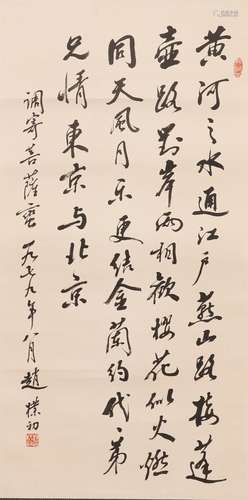 黄河之水通江户燕山路接蓬
壶路对岸两相欢樱花似火燃
同天风月乐更结金兰约代代弟
兄情東京与北京
调寄菩薩蛮 一九七九年八月 趙樸初